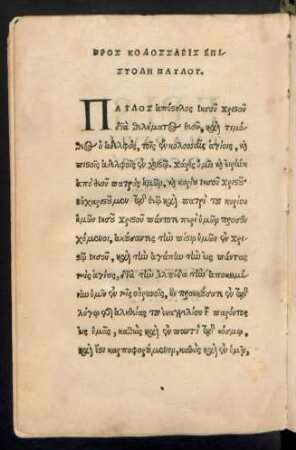 ΠΡΟΣ ΚΟΛΟΣΣΑΕΙΣ ΕΠΙ
ΣΤΟΛΗ ΠΑΥΛΟΥ.
ΠΑΥΛΟΣ ἀπόστολος ἰησοῦ χριστοῦ
διὰ θελήματος θεοῦ, καὶ τιμό
θεος ὁ ἀδελφὸς, τοῖς ἐν κολοσσαῖς ἁγίοις, καὶ
πιστοῖς ἀδελφοῖς ἐν χριστῷ. Χάρις ὑμῖν καὶ εἰρήνη
ἀπὸ θεοῦ πατρὸς ἡμῶν, καὶ κυρίου ἰησοῦ χριστοῦ
εὐχαριστοῦμεν τῷ θεῷ καὶ πατρὶ τοῦ κυρίου
ἡμῶν ἰησοῦ χριστοῦ πάντοτε περὶ ὑμῶν προσευ
χόμενοι, ἀκούσαντες τὴν πίστιν ὑμῶν ἐν χρι
στῷ ἰησοῦ, καὶ τὴν ἀγάπην τὴν εἰς πάντας
τοὺς ἁγίους, διὰ τὴν ἐλπίδα τὴν ἀποκειμέ
νην ὑμῖν ἐν τοῖς οὐρανοῖς, ἣν προηκούσατε ἐν τῷ
λόγῳ τῆς ἀληθείας τοῦ εὐαγγελίου τοῦ παρόντος
εἰς ὑμᾶς, καθὼς καὶ ἐν παντὶ τῷ κόσμῳ,
καὶ ἔστι καρποφορούμενον, καθὼς καὶ ἐν ὑμῖν,